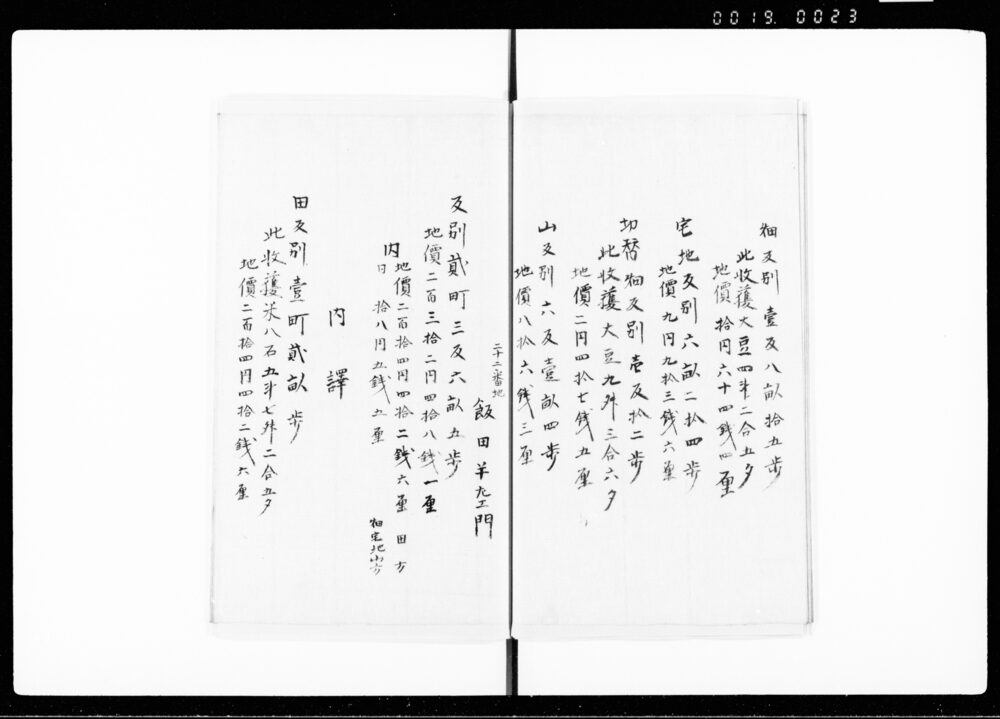 0019.0023
畑反別壹反八畝拾五歩
此收獲大豆四斗二合五夕
地價拾円六十四銭四厘
宅地反別六畝二拾四歩
地價九円九拾三銭六厘
切替畑反別壱反拾二歩
此收獲大豆九舛三合六夕
地價二円四拾七銭五厘
山反別六反壹畝四歩
地價八拾六銭三厘
二十二番地
飯田半左エ門
反別貳町三反六畝五歩
地價二百三拾二円四拾八銭一厘
内
地價二百拾四円四拾二銭六厘 田方
日 拾八円五銭五厘 畑宅地山方
内譯
田反別壹町貳畝歩
此收獲米八石五斗七舛二合五夕
地價二百拾四円四拾二銭六厘